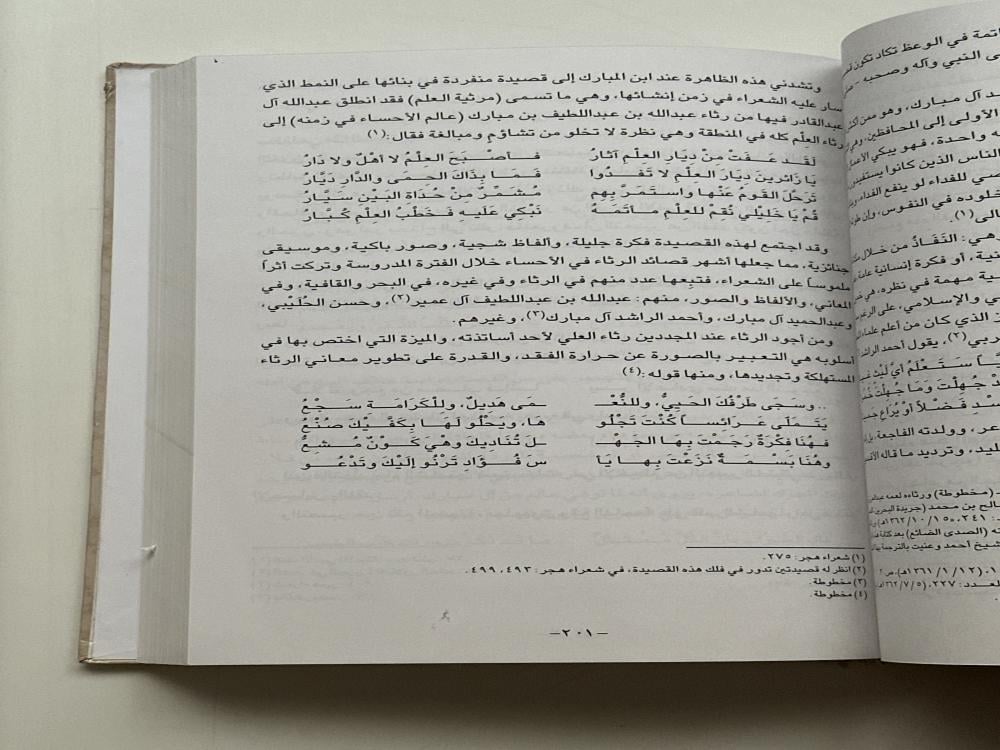 وتشدني هذه الظاهرة عند ابن المبارك إلى قصيدة منفردة في بنائها على النمط الذي
سار عليه الشعراء في زمن إنشائها، وهي ما تسمى (مرثية العلم) فقد انطلق عبدالله آل
عبدالقادر فيها من رثاء عبدالله بن عبداللطيف بن مبارك (عالم الأحساء في زمنه) إلى
رثاء العلم كله في المنطقة وهي نظرة لا تخلو من تشاؤم ومبالغة فقال:(١)
لَقَد عَفَتْ مِنْ دِيَارِ العِلْمِ آثارُ فَأصْبَحَ العِلْمُ لا أهْلٌ ولا دَارُ
يَا زَائرينَ دِيَارَ العلْمِ لا تَفِدُوا فَمَا بِذَاكَ الحِمَى والدَّارِ دَيَّارُ
تَرَحَّلَ القَومُ عَنْها واستَمَرَّ بِهِم مُشَمِّرٌ مِنْ حُدَاةِ البَيْنِ سَيَّارُ
قُمْ يَا خَلِيْلِي نُقِمْ للعِلْمِ مأتَمَهُ نَبْكِي عَلَيهِ فَخَطْبُ العلْمِ كُبَّارُ
وقد اجتمع لهذه القصيدة فكرة جليلة، وألفاظ شجية، وصور باكية، وموسيقى
جنائزية، مما جعلها أشهر قصائد الرثاء في الأحساء خلال الفترة المدروسة وتركت أثراً
ملموساً على الشعراء، فتبعها عدد منهم في الرثاء وفي غيره، في البحر والقافية، وفي
المعاني، والألفاظ والصور، منهم: عبدالله بن عبداللطيف آل عمير(٢)، وحسن الحُلَيْبي،
وعبدالحميد آل مبارك، وأحمد الراشد آل مبارك(٣)، وغيرهم.
ومن أجود الرثاء عند المجددين رثاء العلي لأحد أساتذته، والميزة التي اختص بها في
أسلوبه هي التعبير بالصورة عن حرارة الفقد، والقدرة على تطوير معاني الرثاء
المستهلكة وتجديدها، ومنها قوله:(٤)
.. وسَجَى طَرْفُكَ الحَيِيُّ، وللنُّعْـ ـمَى هَدِيلٌ، وللْكَرَامَةِ سَجْعُ
يَتَمَلَّى عَرَائِساً كُنْتَ تَجْلُو هَا، ويَحْلُو لَهَا بِكَفَّيْكَ صُنْعُ
فَهُنَا فكْرَةٌ رَجَمْتَ بِهَا الجَهْـ ـلَ تُنَادِيكَ وهْيَ كَوْنٌ مُشِعُّ
وهُنَا بَسْمَةٌ نَزَعْتَ بِهَا يَأْ سَ فُؤَادٍ تَرْنُو إلَيْكَ وتَدْعُو
(١) شعراء هجر: ٢٧٥.
(٢) انظر له قصيدتين تدور في فلك هذه القصيدة، في شعراء هجر: ٤٩٣، ٤٩٩.
(٣) مخطوطة.
(٤) مخطوطة.
–٢٠١–